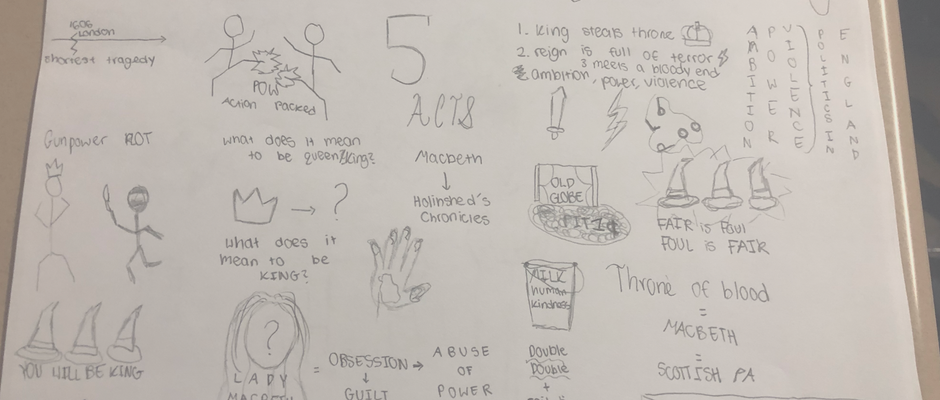 1606
London
shortest tragedy
POW
Action Packed
5
ACTS
1. King steals throne
2. reign is full of terror
3 meets a bloody end
ambition, power, violence
AMBITION
POWER
VIOLENCE
POLITICS IN
ENGLAND
Gunpower PLOT
what does it mean
to be queen/king?
?
what does it
mean to be
KING?
Macbeth
Holinshed's
Chronicles
OLD
GLOBE
PIT 1¢
FAIR is Foul
FOUL is FAIR
MILK
human
kindness
Throne of blood
=
MACBETH
=
SCOTTISH PA
YOU WILL BE KING
?
LADY
MACBETH
= OBSESSION → ABUSE
OF
POWER
↓
GUILT
Double
Double
+